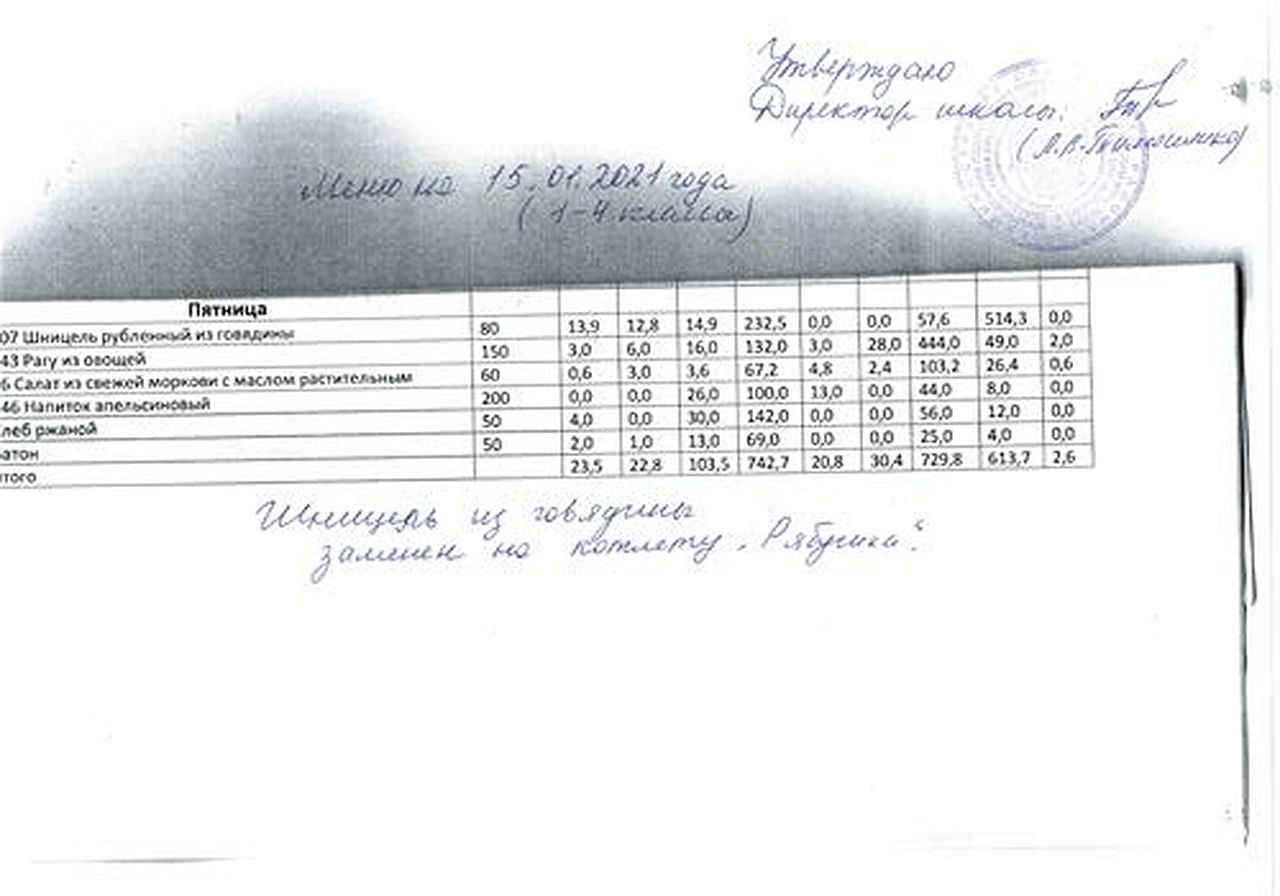 Утверждаю
Директор школы:
Меню на 15.01.2021 года
(1-4 класса)
Пятница
07 Шницель рубленный из говядины 80 13,9 12,8 14,9 232,5 0,0 0,0 57,6 514,3 0,0
43 Рагу из овощей 150 3,0 6,0 16,0 132,0 3,0 28,0 444,0 49,0 2,0
6 Салат из свежей моркови с маслом растительным 60 0,6 3,0 3,6 67,2 4,8 2,4 103,2 26,4 0,6
46 Напиток апельсиновый 200 0,0 0,0 26,0 100,0 13,0 0,0 44,0 8,0 0,0
леб ржаной 50 4,0 0,0 30,0 142,0 0,0 0,0 56,0 12,0 0,0
атон 50 2,0 1,0 13,0 69,0 0,0 0,0 25,0 4,0 0,0
того 23,5 22,8 103,5 742,7 20,8 30,4 729,8 613,7 2,6
Шницель из говядины
заменен на котлету "Рябушка".